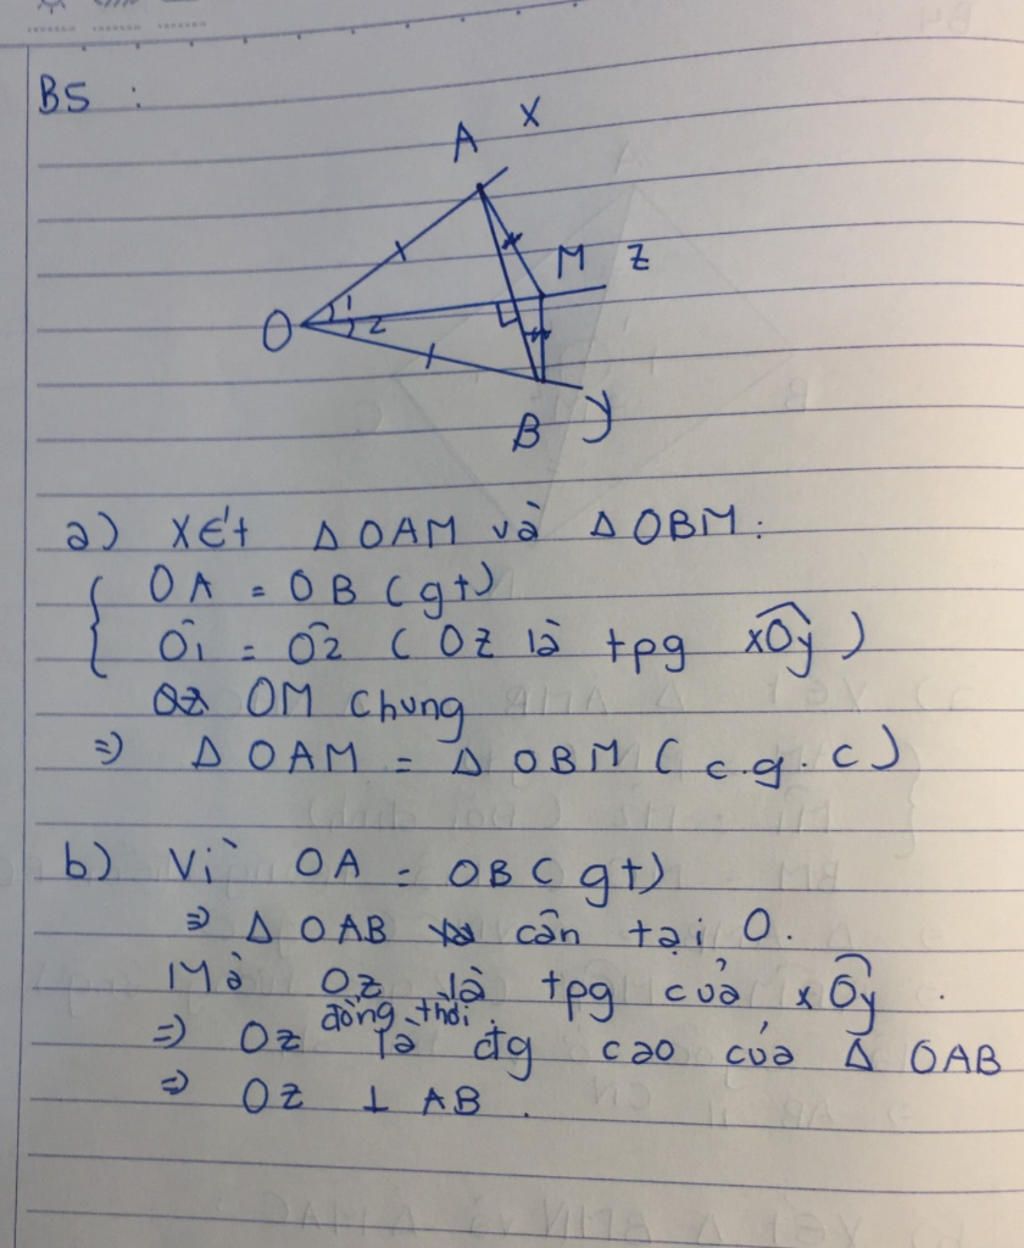 B5 :
A x
M z
O 1
2
B y
a) Xét Δ OAM và Δ OBM :
OA = OB (gt)
Ô1 = Ô2 ( Oz là tpg xÔy )
OM chung
⇒ Δ OAM = Δ OBM ( c.g.c )
b) Vì OA = OB ( gt)
⇒ Δ OAB cân tại O.
Mà Oz là tpg của xÔy .
⇒ Oz đồng thời là đg cao của Δ OAB
⇒ Oz ⊥ AB .